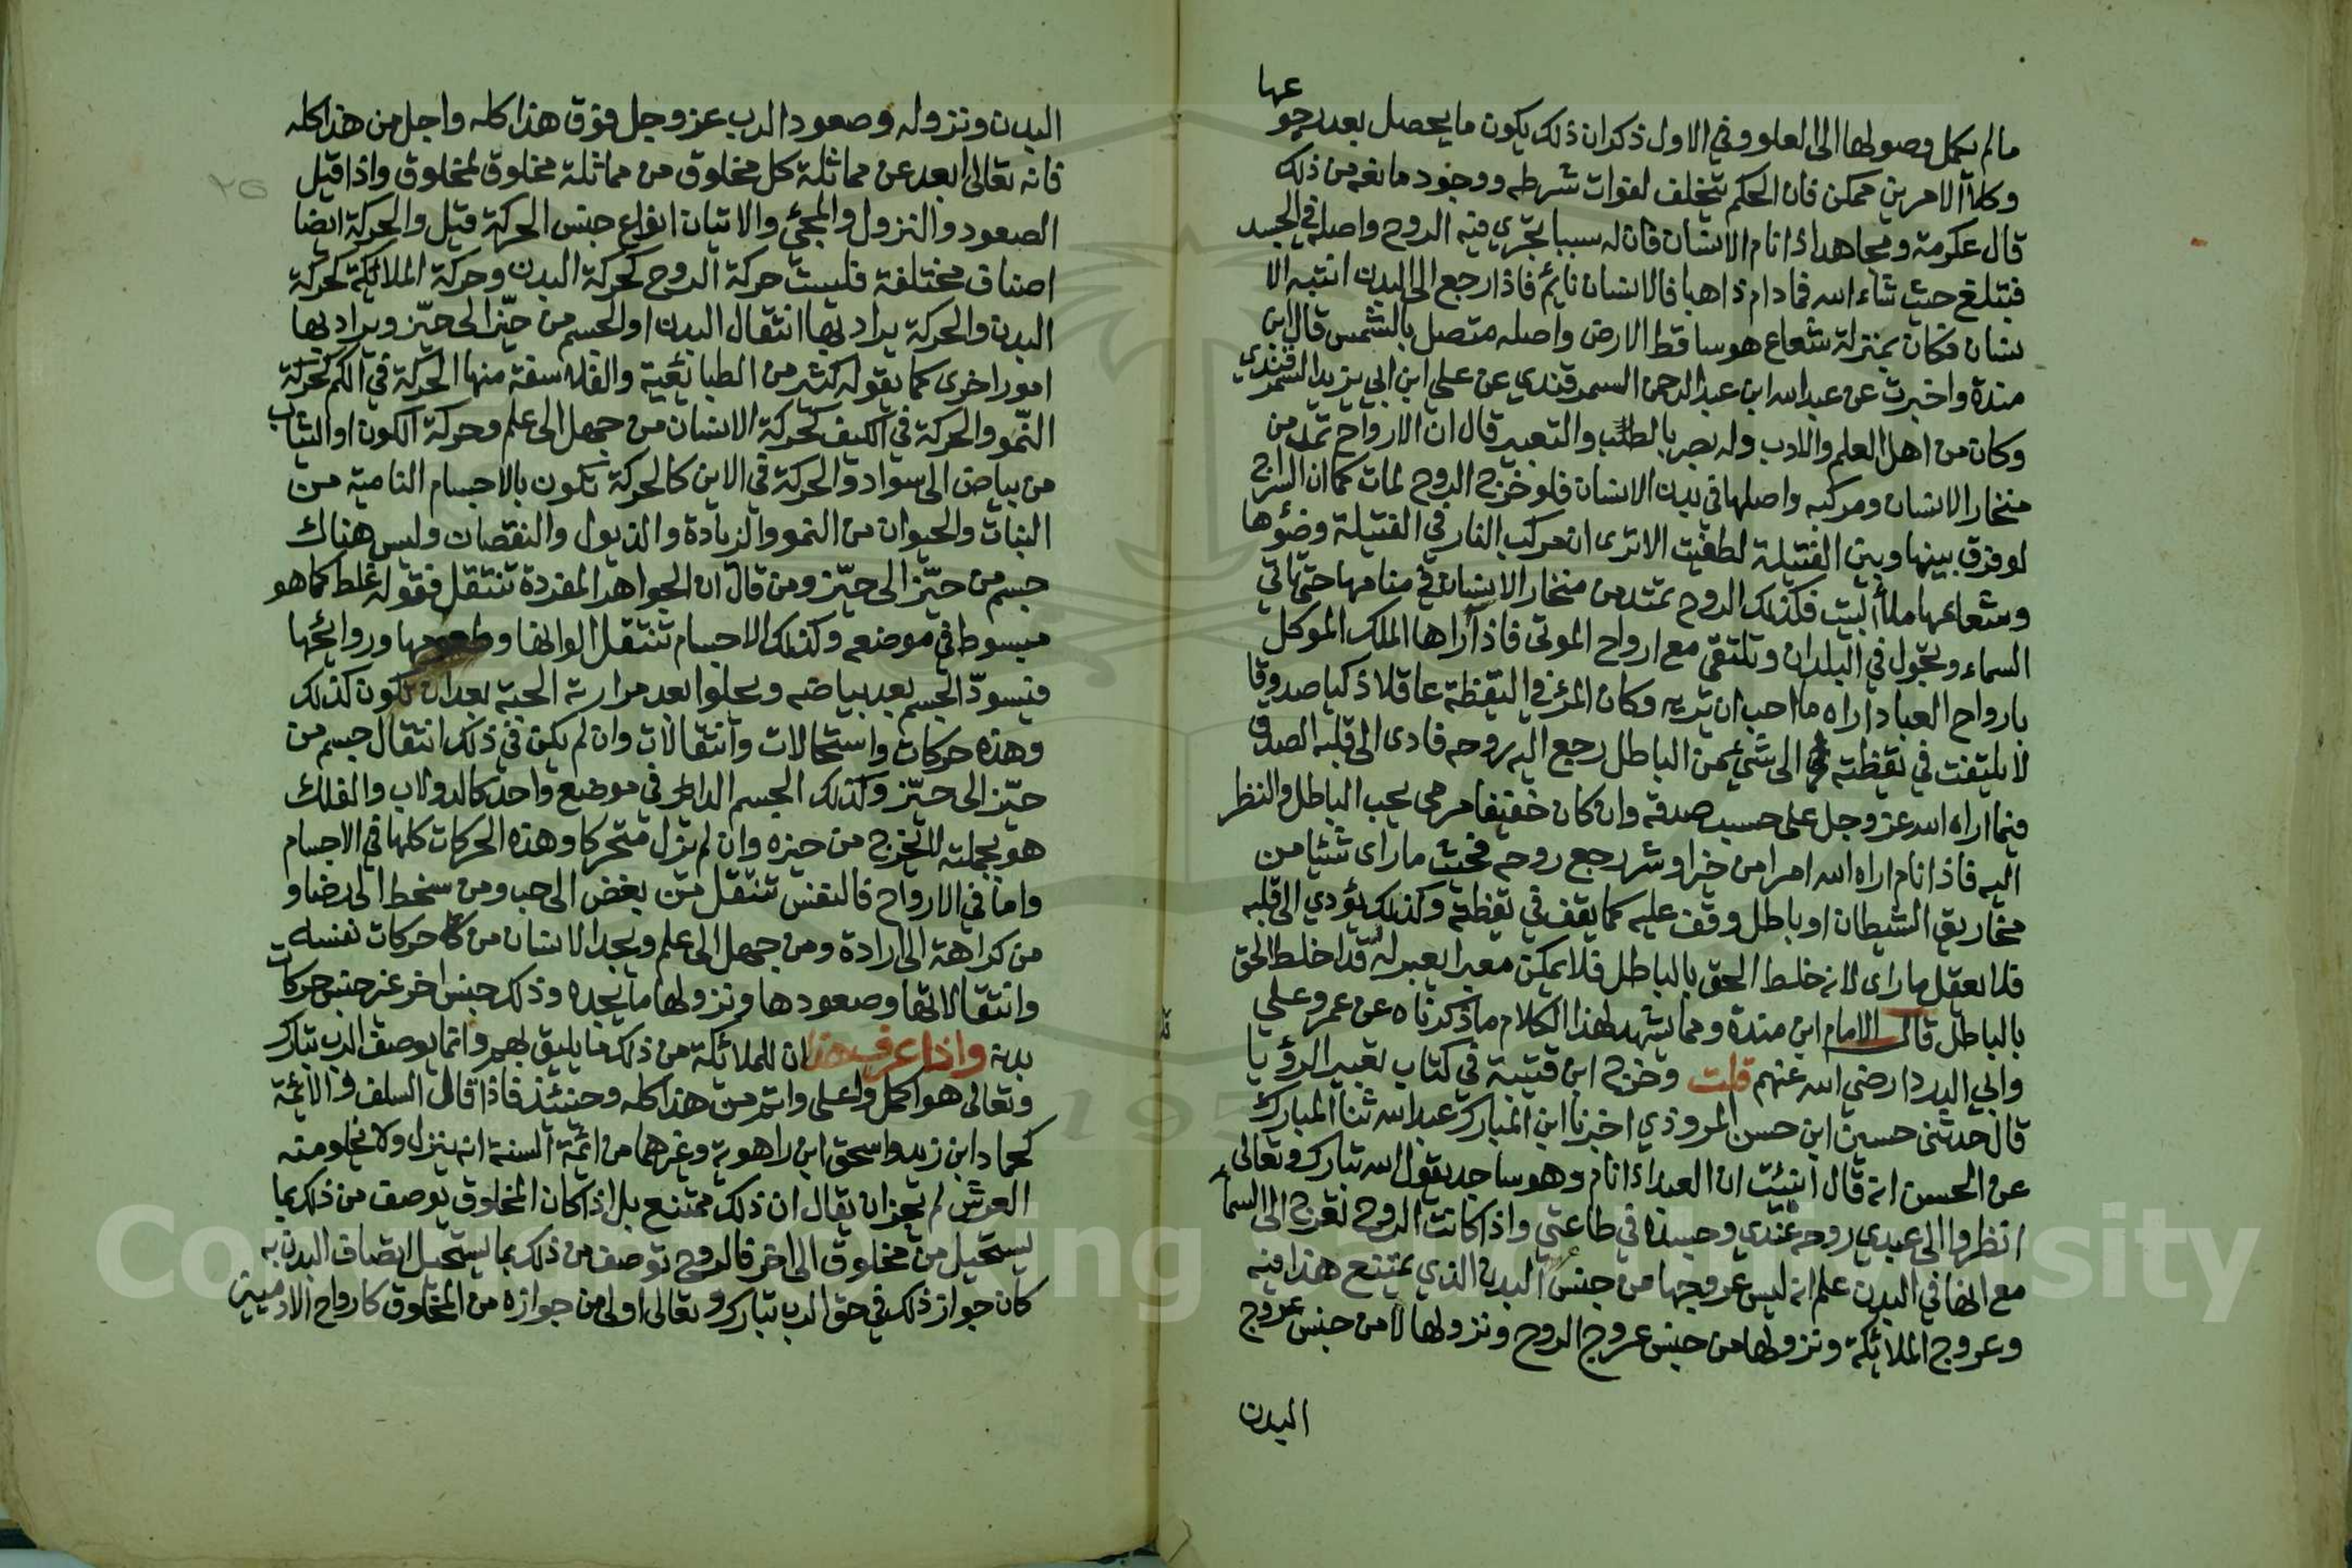 مالم يكمل وصولها الى العلو وفي الاول ذكر ان ذلك يكون ما يحصل بعد رجوعها
وكلا الامرين ممكن فان الحكم يتخلف لفوات شرطه ووجود مانعه من ذلك
قال عكرمة ومجاهد اذا نام الانسان فان له سببا تجري فيه الروح واصله في الجسد
فتبلغ حيث شاء الله فما دام ذاهبا فالانسان نايم فاذا رجع الى البدن انتبه الا
نسان فكان بمنزلة شعاع هو ساقط الارض واصله متصل بالشمس قال ابن
مندة واخبرت عن عبد الله ابن عبد الرحمن السمرقندي عن علي ابن ابي يزيد السمرقندي
وكان من اهل العلم والادب وله بصر بالطب والتعبير قال ان الارواح تمد من
منخار الانسان ومركبه واصلها في بدن الانسان فلو خرج الروح لمات كما ان السراج
لو فرق بينها وبين الفتيلة لطفيت الا ترى ان مركب النار في الفتيلة وضوءها
وشعاعها ملأ البيت فكذلك الروح تمتد من منخار الانسان في منامها حتى تاتي
السماء وتجول في البلدان وتلتقي مع ارواح الموتى فاذا اراها الملك الموكل
بارواح العباد اراه ما احب ان تريه وكان المرء في اليقظة عاقلا ذكيا صدوقا
لا يلتفت في يقظته الى شيء من الباطل رجع اليه روحه فادى الى قلبه الصدق
فيما اراه الله عز وجل على حسب صدقه وان كان خفيفا يحب الباطل والنظر
اليه فاذا نام اراه الله امرا من خير او شر رجع روحه فحيث ما راى شيئا من
مخاريق الشيطان او باطل وقف عليه كما يقف في يقظته وكذلك يؤدي الى قلبه
فلا يعقل ما راى لانه خلط الحق بالباطل فلا يمكن معبرا يعبر له قد اخلط الحق
بالباطل قال الامام ابن مندة ومما يشهد لهذا الكلام ما ذكرناه عن عمر وعلي
وابي الدردا رضي الله عنهم قلت وخرج ابن قتيبة في كتاب تعبير الرؤيا
قال حدثنى حسين ابن حسن المروذي اخبرنا ابن المبارك عبد الله ثنا المبارك
عن الحسن انه قال انبئت ان العبد اذا نام وهو ساجد يقول الله تبارك وتعالى
انظروا الى عبدي روحه عندي وجسده في طاعتي واذا كانت الروح تعرج الى السماء
مع انها في البدن علم انه ليس عروجها من جنس البدن الذي يمتنع هذا فيه
وعروج الملائكة ونزولها من جنس عروج الروح ونزولها لا من جنس عروج
البدن
البدن ونزوله وصعود الرب عز وجل فوق هذا كله واجل من هذا كله
فانه تعالى ابعد عن مماثلة كل مخلوق من مماثلة مخلوق لمخلوق واذا قيل
٢٥
الصعود والنزول والمجئ والاتيان انواع جنس الحركة قيل والحركة ايضا
اصناف مختلفة فليست حركة الروح كحركة البدن وحركة الملائكة كحركة
البدن والحركة يراد بها انتقال البدن او الجسم من حيّز الى حيّز ويراد بها
امور اخرى كما يقوله كثير من الطبائعية والفلاسفة منها الحركة في الكم كحركة
النّمو والحركة في الكيف كحركة الانسان من جهل الى علم وحركة الكون او الثياب
من بياض الى سواد والحركة في الاين كالحركة تكون بالاجسام النامية من
النبات والحيوان من النمو والزيادة والذبول والنقصان وليس هناك
جسم من حيّز الى حيّز ومن قال ان الجواهر المفردة تنتقل فقوله غلط كما هو
مبسوط في موضعه وكذلك الاجسام تنتقل الوانها وطعومها وروائحها
فيسودّ الجسم بعد بياضه ويحلوا بعد مرارته الجبة بعد ان تكون كذلك
وهذه حركات واستحالات وانتقالات وان لم يكن في ذلك انتقال جسم من
حيّز الى حيّز وكذلك الجسم الدائر في موضع واحد كالدولاب والفلك
هو بجملته لا يخرج من حيزه وان لم يزل متحركا وهذه الحركات كلها في الاجسام
واما في الارواح فالنفس تنتقل من بغض الى حب ومن سخط الى رضا و
من كراهة الى ارادة ومن جهل الى علم ويجد الانسان من حركات نفسه
وانتقالاتها وصعودها ونزولها ما يجده وذلك جنس اخر غير جنس حركات
بدنه واذا عرف هذا ان للملائكة من ذلك ما يليق بهم وانما يوصف الرب تبارك
وتعالى هو اكمل واعلى واتم من هذا كله وحنيئذ فاذا قال السلف والائمة
كحماد ابن زيد واسحق ابن راهوية وغيرهما من ائمة السنة انه ينزل ولا يخلو منه
العرش لم يجز ان يقال ان ذلك ممتنع بل اذا كان المخلوق يوصف من ذلك بما
يستحيل من مخلوق الى اخر فالروح توصف من ذلك بما يستحيل اتصاف البدن به
كان جواز ذلك في حق الرب تبارك وتعالى اولى من جوازه من المخلوق كارواح الادميين